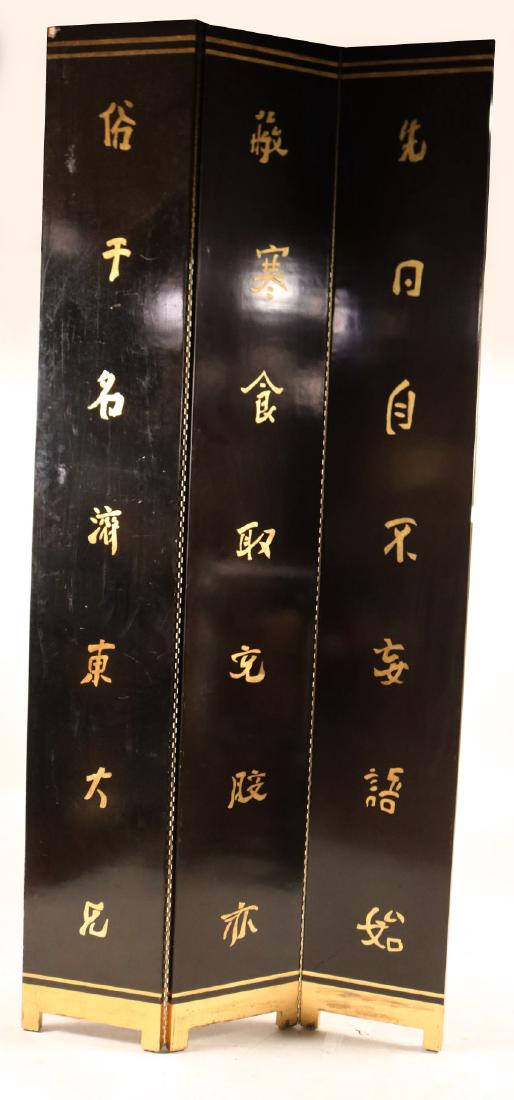 先日自不妄語始
藏寒食取充腹亦
俗干名濟東大兄